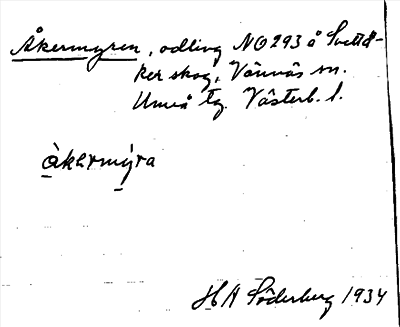 Åkermyren, odling NO 293 å Svettå-
ker skog, Vännäs sn.
Umeå tg. Västerb. l.
åkermýra
H A Söderberg 1934